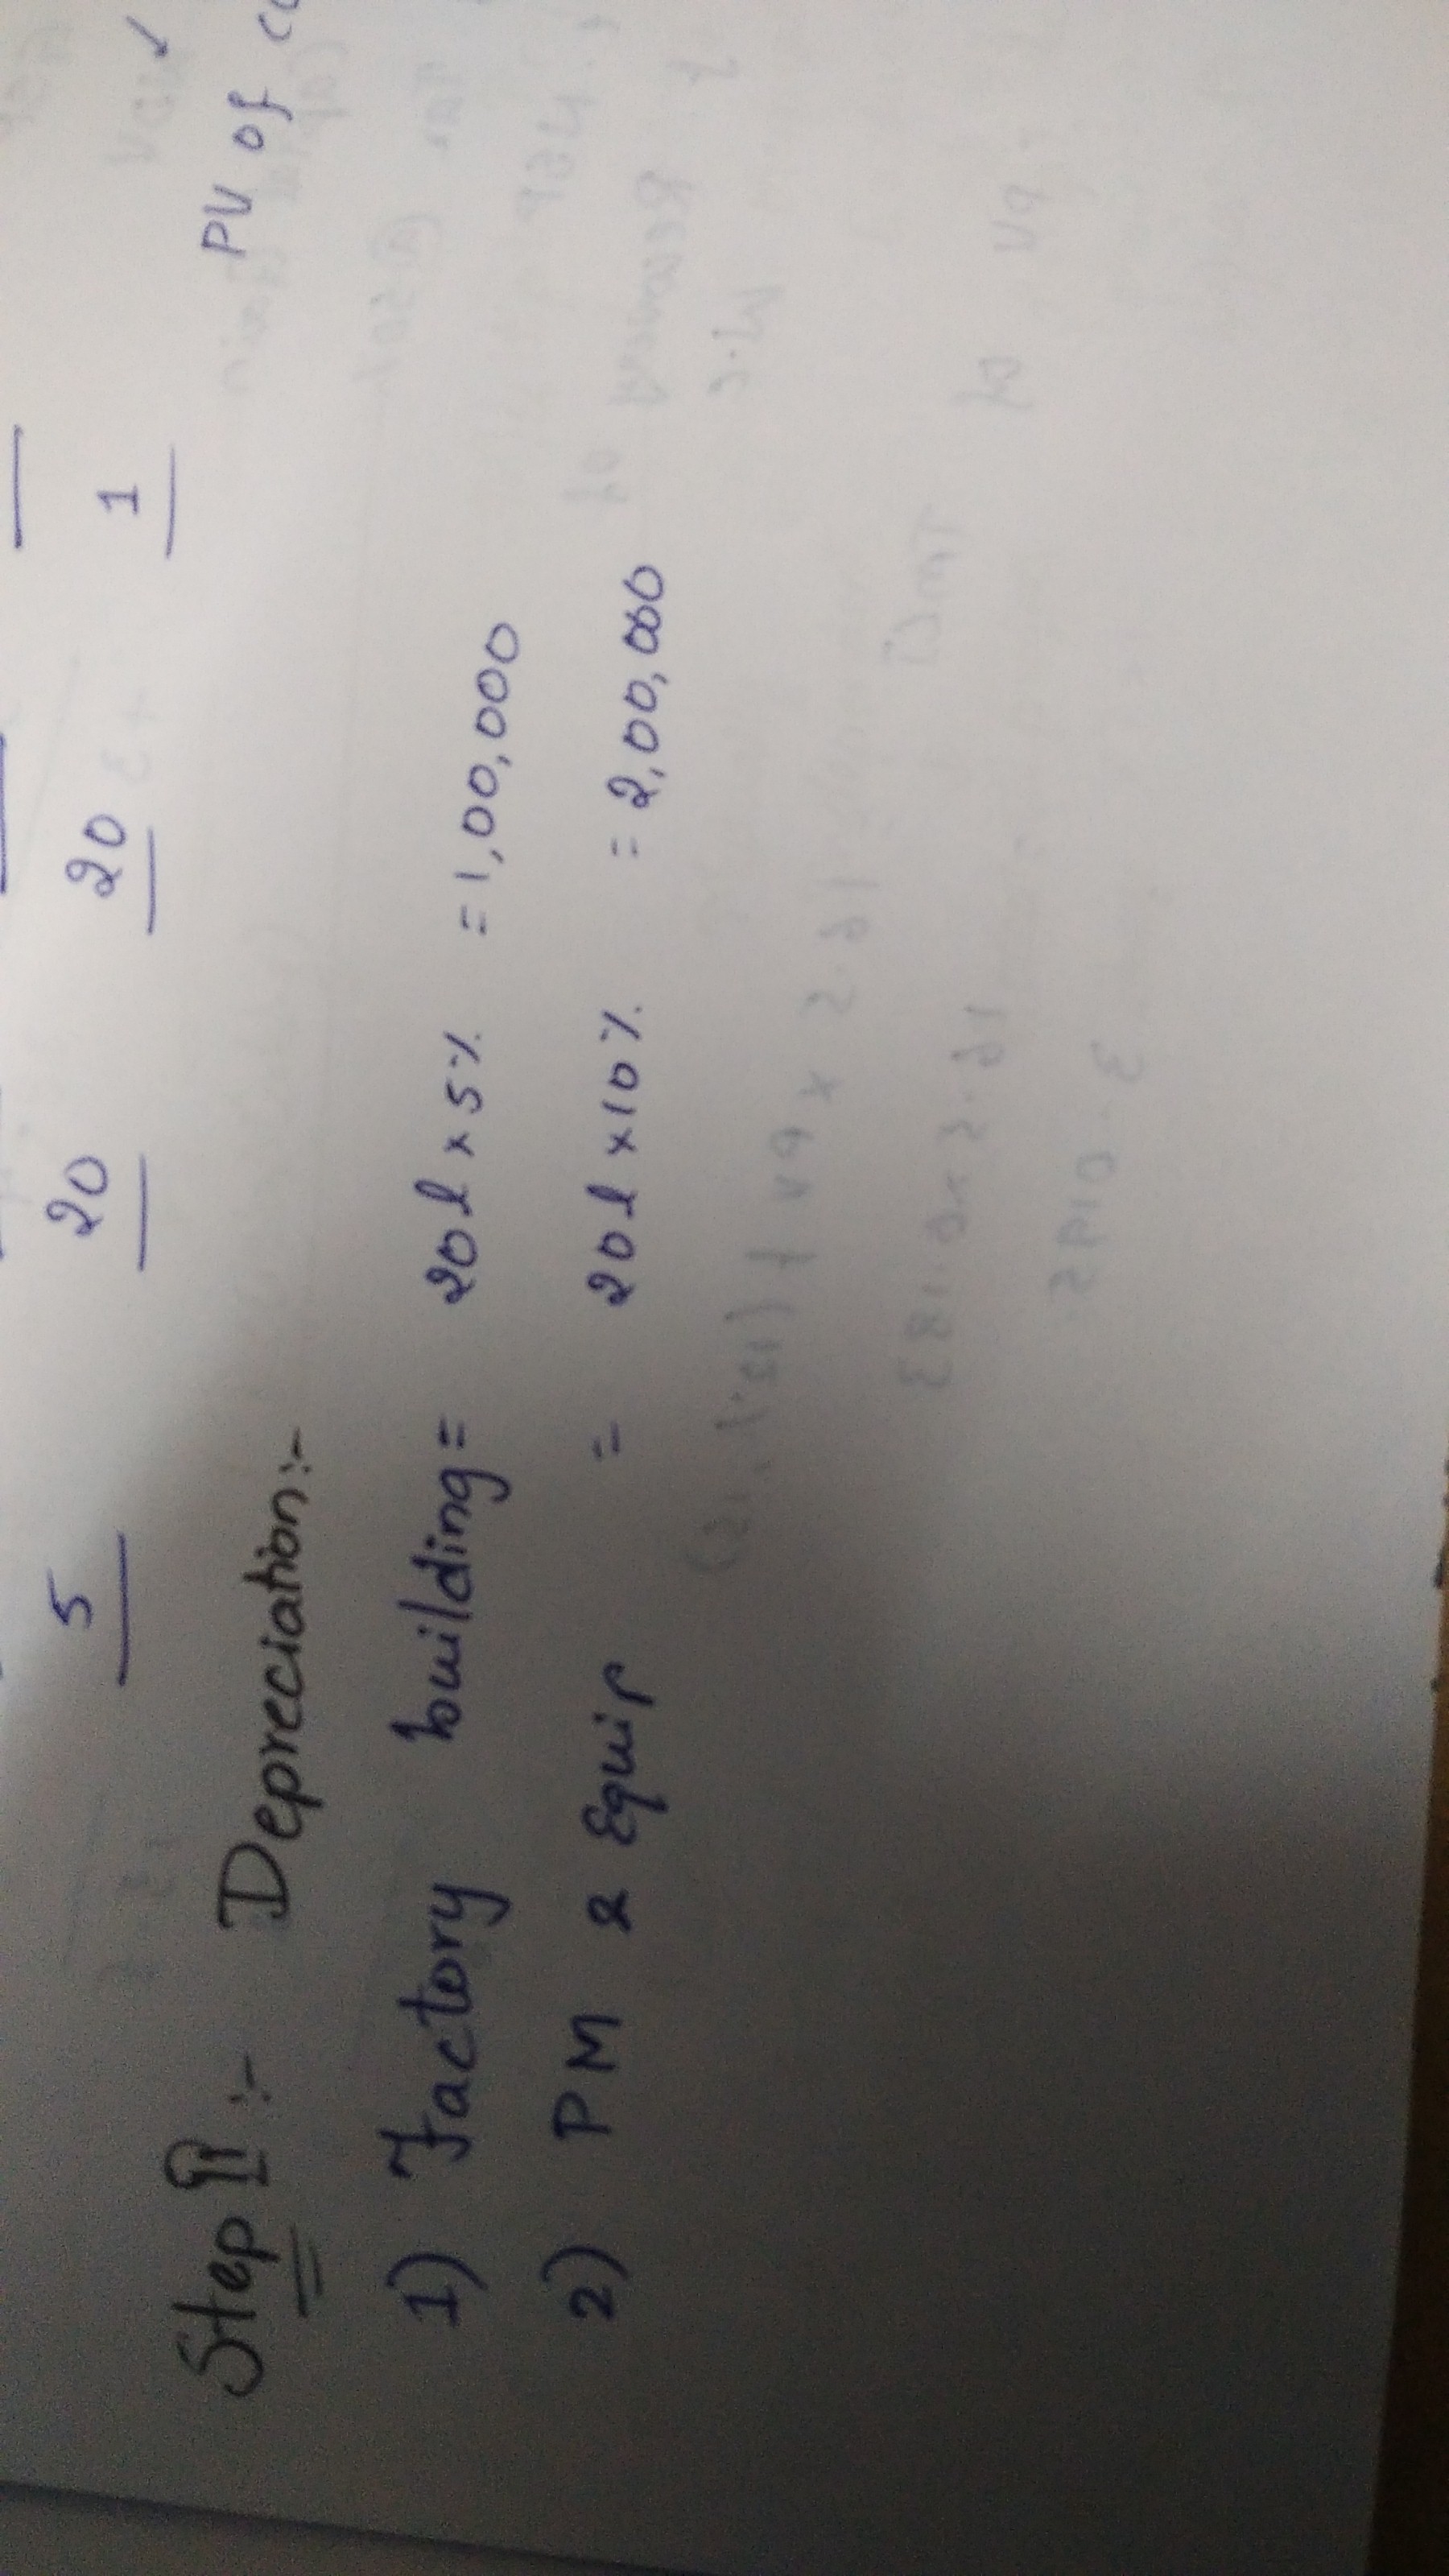 5 20 20 1
PV of
Step II :- Depreciation:-
1) Factory building = 20 l x 5% = 1,00,000
2) PM & Equip = 20 l x 10% = 2,00,000